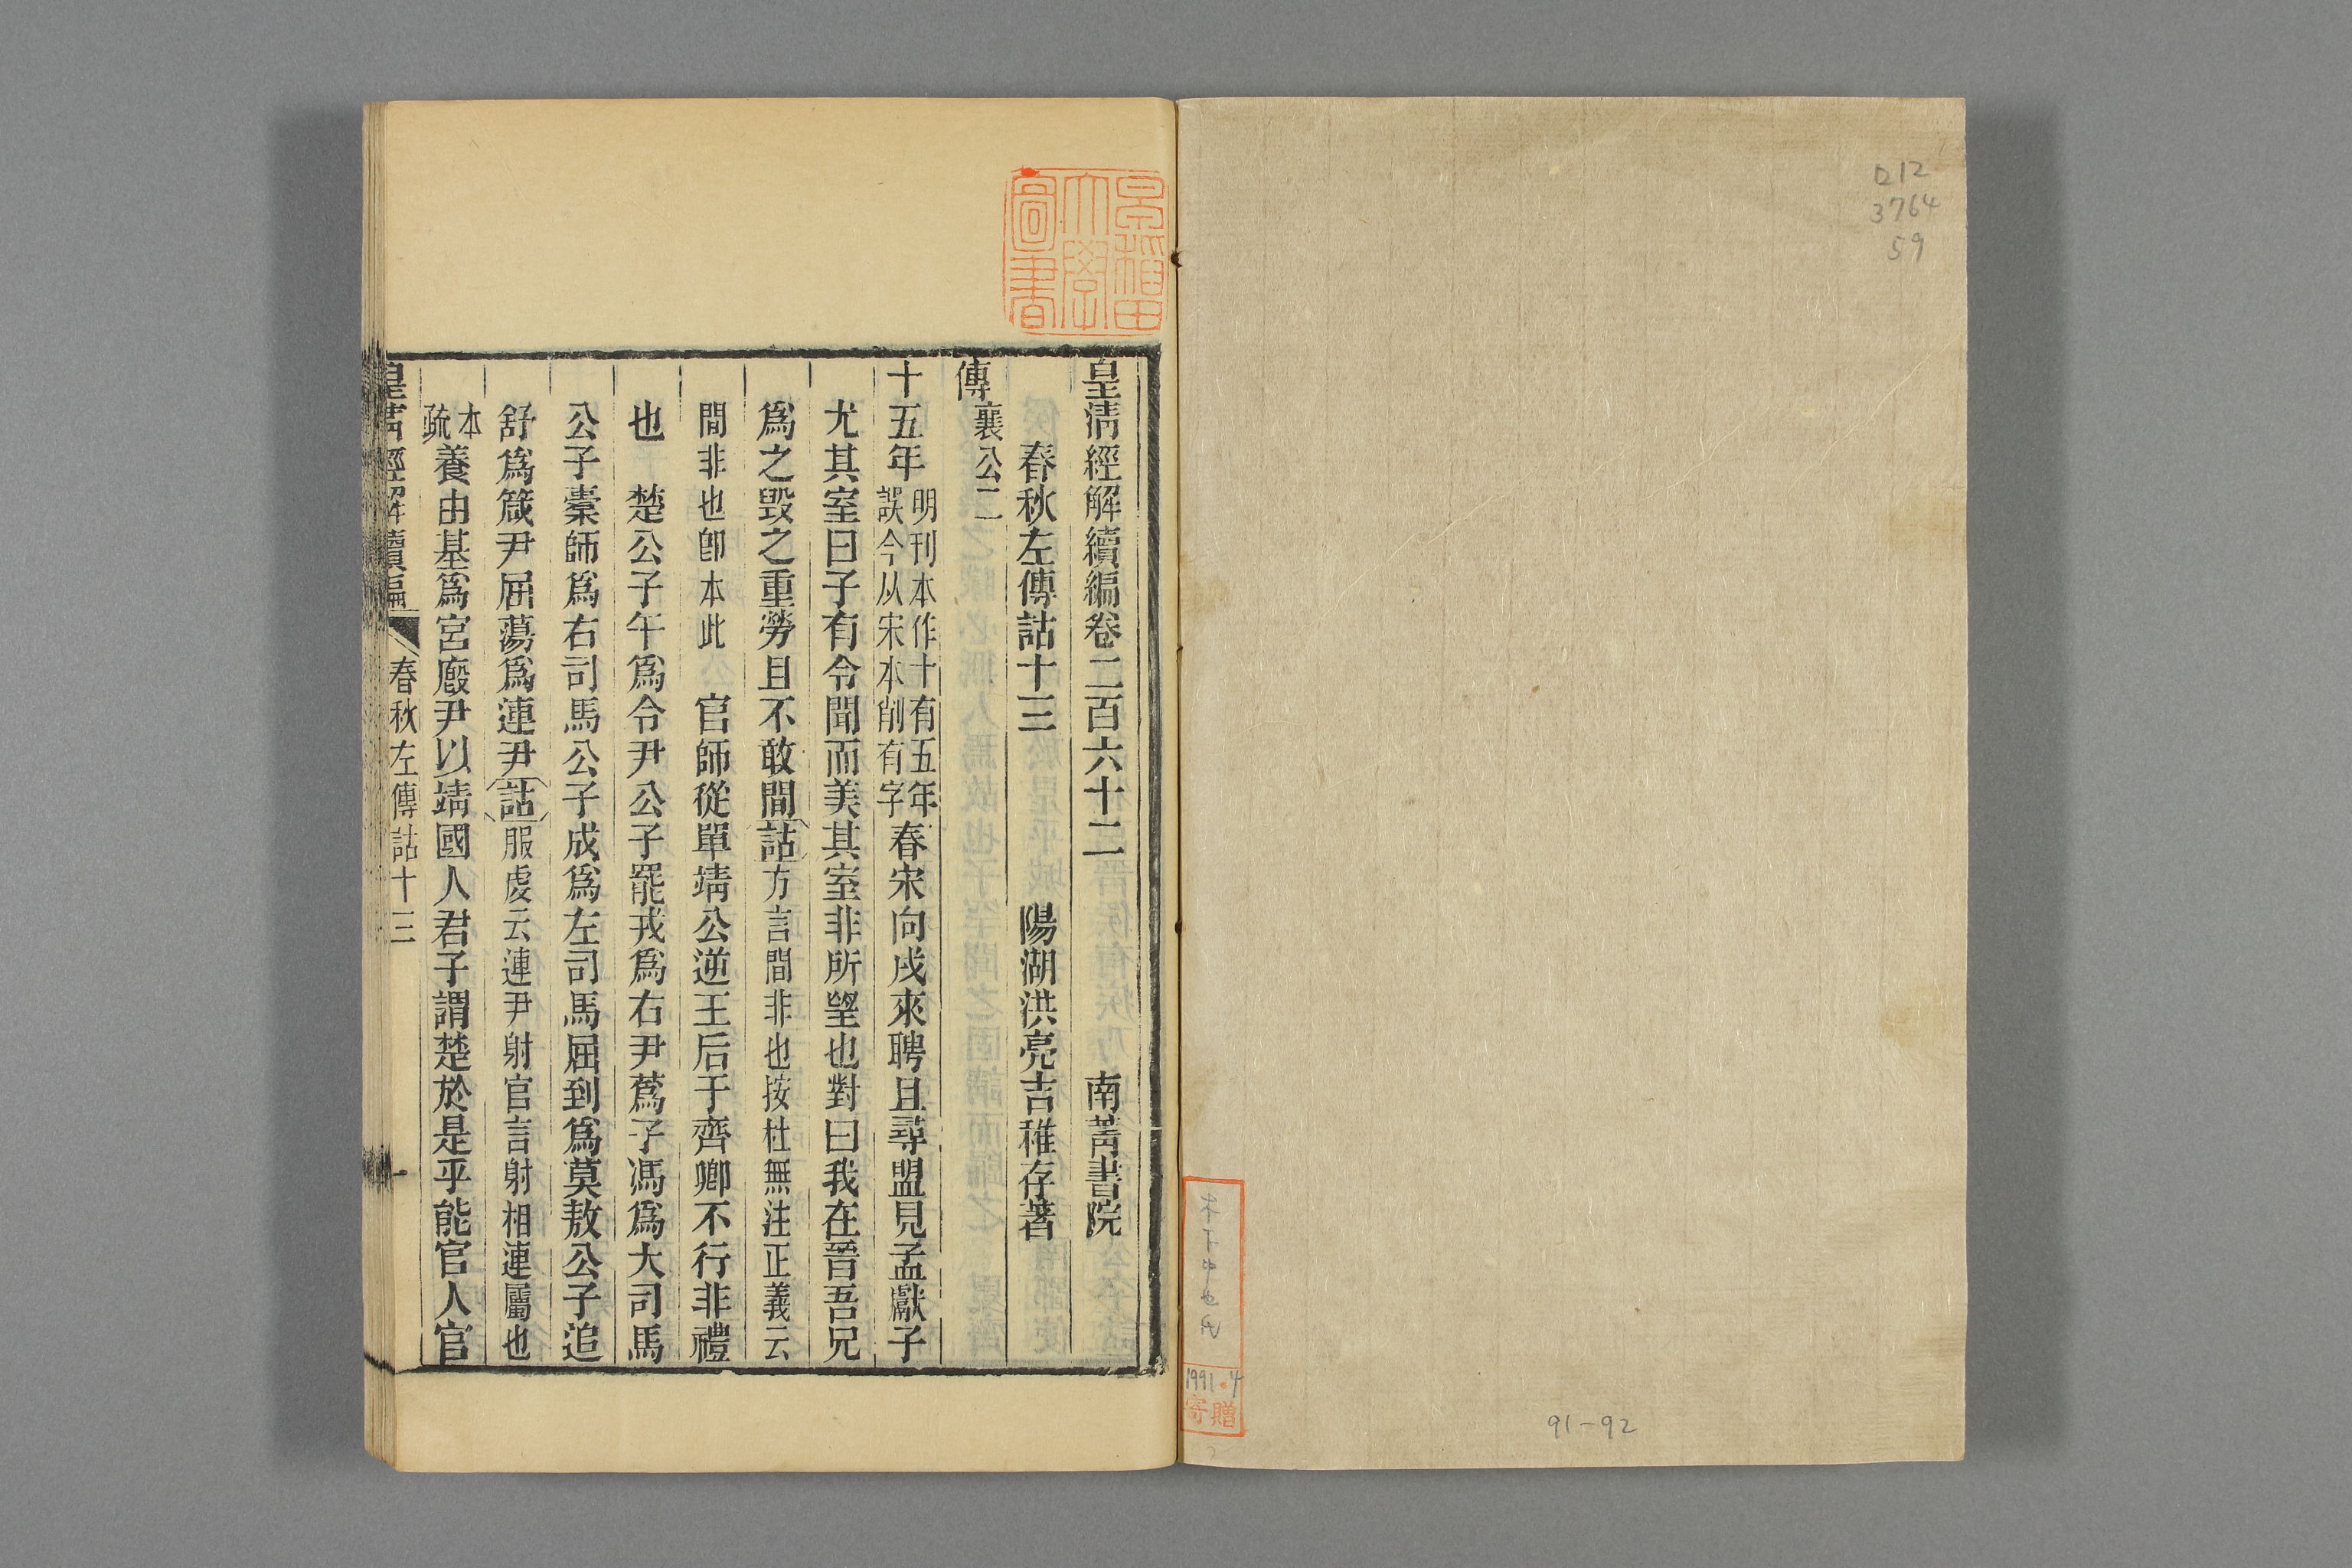 ロ12
3764
59
1991.4
寄贈
91-92
早稲田大學圖書
皇清經解續編卷二百六十二 南菁書院
春秋左傳詁十三 陽湖洪亮吉稚存著
傳襄公二
十五年明刊本作十有五年誤今从宋本削有字春宋向戌來聘且尋盟見孟獻子
尤其室曰子有令聞而美其室非所望也對曰我在晉吾兄
爲之毀之重勞且不敢間詁方言間非也按杜無注正義云
間非也卽本此 官師從單靖公逆王后于齊卿不行非禮
也 楚公子午爲令尹公子罷戎爲右尹蒍子馮爲大司馬
公子橐師爲右司馬公子成爲左司馬屈到爲莫敖公子追
舒爲箴尹屈蕩爲連尹詁服虔云連尹射官言射相連屬也
本疏養由基爲宮廄尹以靖國人君子謂楚於是乎能官人官
皇清經解續編 春秋左傳詁十三 一